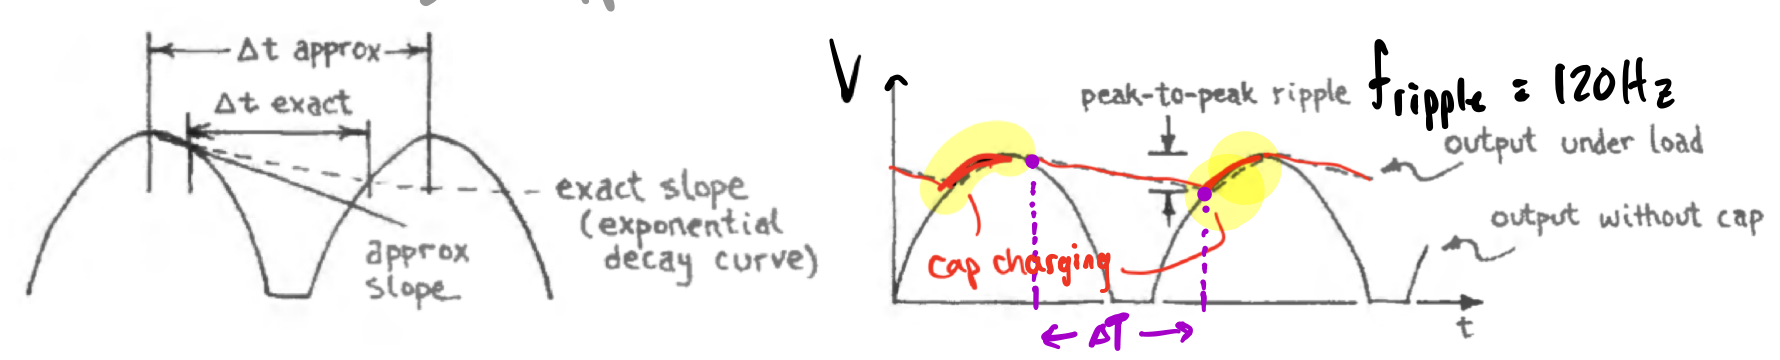 Δt approx
Δt exact
exact slope
(exponential
decay curve)
approx
slope
V
peak-to-peak ripple
f ripple = 120Hz
output under load
output without cap
cap charging
t
ΔT